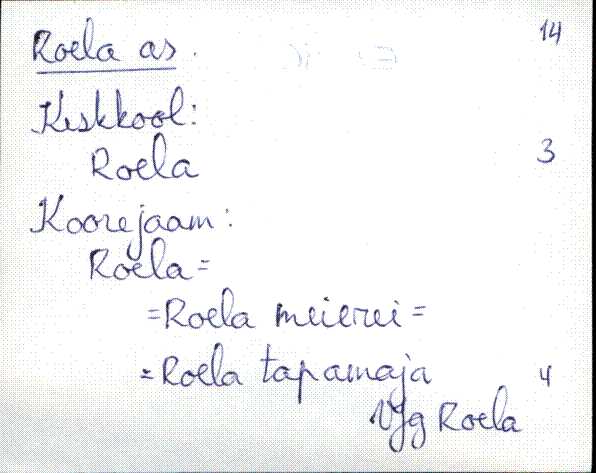 Roela as. 14
Keskkool:
Roela 3
Koorejaam:
Roela =
= Roela meierei =
= Roela tapamaja 4
VJg Roela